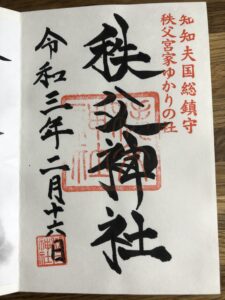 知知夫国総鎮守
秩父宮家ゆかりの社
秩父神社
令和三年二月十六日